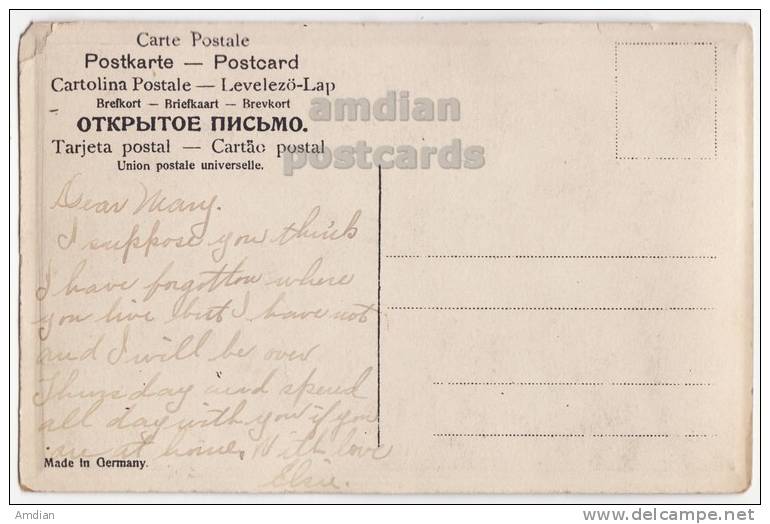 Carte Postale
Postkarte — Postcard
Cartolina Postale — Levelezö-Lap
Brefkort — Briefkaart — Brevkort
ОТКРЫТОЕ ПИСЬМО.
Tarjeta postal — Cartão postal
Union postale universelle.
amdian
postcards
Dear Mary.
I suppose you think
I have forgotton where
you live but I have not
and I will be over
Thursday and spend
all day with you if you
are at home. With love
Elsie.
Made in Germany.
Amdian
www.delcampe.net